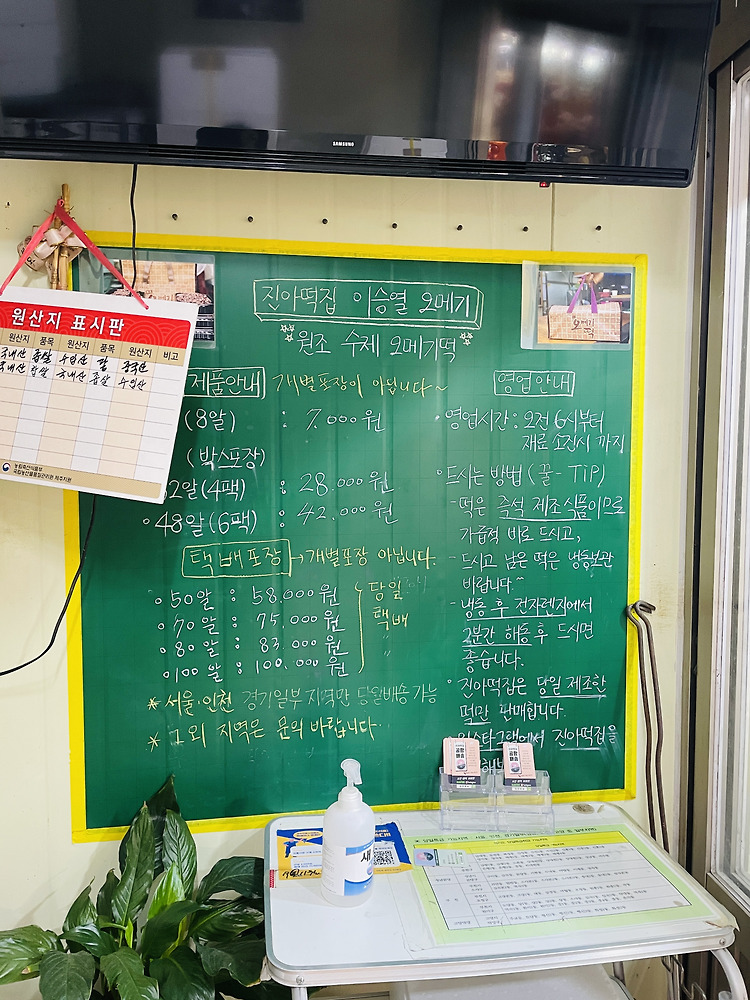 SAMSUNG
원산지 표시판
원산지 품목 원산지 품목 원산지 비고
국내산 찹쌀 수입산 팥 중국산
국내산 찹쌀 국내산 좁쌀 수입산
농림축산식품부
국립농산물품질관리원 제주지원
진아떡집 이승열 오메기
원조 수제 오메기떡
제품안내 개별포장이 아닙니다~
(8알) : 7.000원
(박스포장)
2알(4팩) : 28.000원
48알(6팩) : 42.000원
택배포장 → 개별포장 아닙니다.
50알 : 58.000원
70알 : 75.000원
80알 : 83.000원
100알 : 100.000원
당일
택배
* 서울·인천 경기일부 지역만 당일배송 가능
* 그외 지역은 문의 바랍니다.
오메기
떡
영업안내
영업시간 : 오전 6시부터
재료 소진시 까지
드시는 방법 (꿀-TiP)
- 떡은 즉석 제조식품이므로
가급적 바로 드시고,
- 드시고 남은 떡은 냉동보관
바랍니다.~
- 냉동 후 전자렌지에서
2분간 해동 후 드시면
좋습니다.
진아떡집은 당일 제조한
떡만 판매합니다.
인스타그램에서 진아떡집을
공항
배송
공항
배송
새